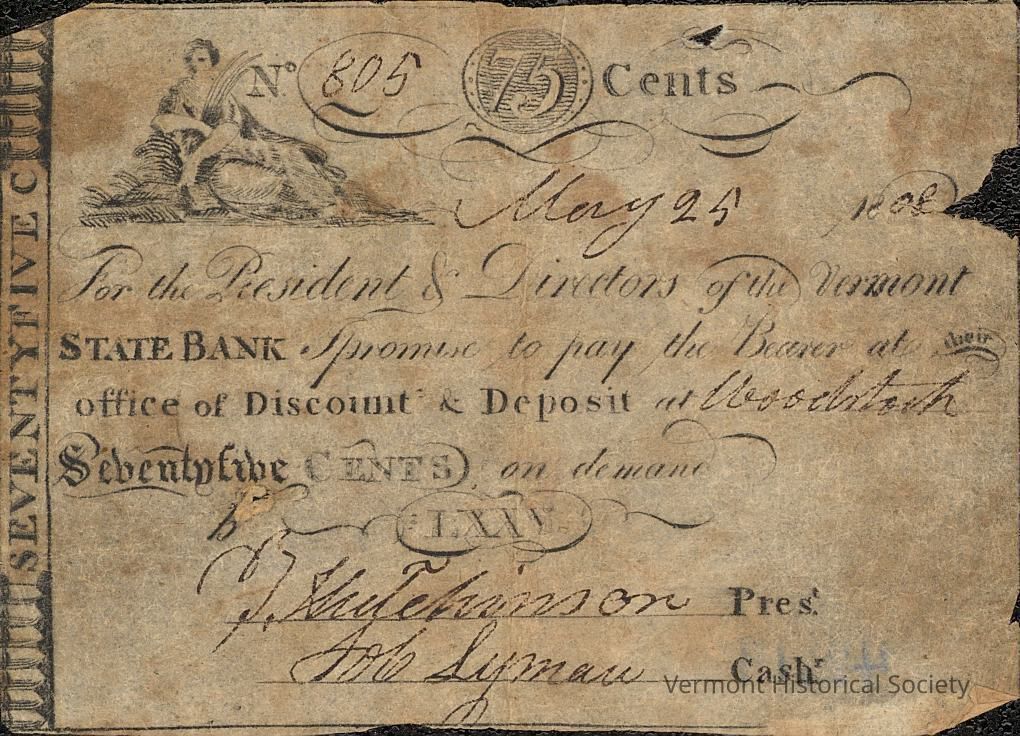 No 805 75 Cents
May 25 1808
For the President & Directors of the Vermont
STATE BANK I promise to pay the Bearer at their
office of Discount & Deposit at Woodstock
Seventyfive CENTS on demand
b LXXV.
T. Hutchinson Prest.
Job Lyman Cashr
SEVENTYFIVE C
Vermont Historical Society